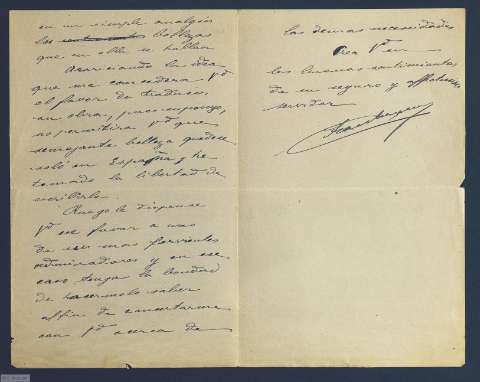 en un simple analysis
las bellezas
que en ella se hallan
Acariciando la idea
que me concederá Vd
el favor de traducir
su obra, pues supongo,
no permitirá Vd que
semejante belleza quede
solo en España, he
tomado la libertad de
escribirle.
Ruego le dispense
Vd ese favor a uno
de sus mas fervientes
admiradores y en ese
caso tenga la bondad
de hacermelo saber
affin de concertarme
con Vd acerca de
las demas necesidades
Crea Vd en
los buenos sentimientos
de su seguro y affectuoso
servidor